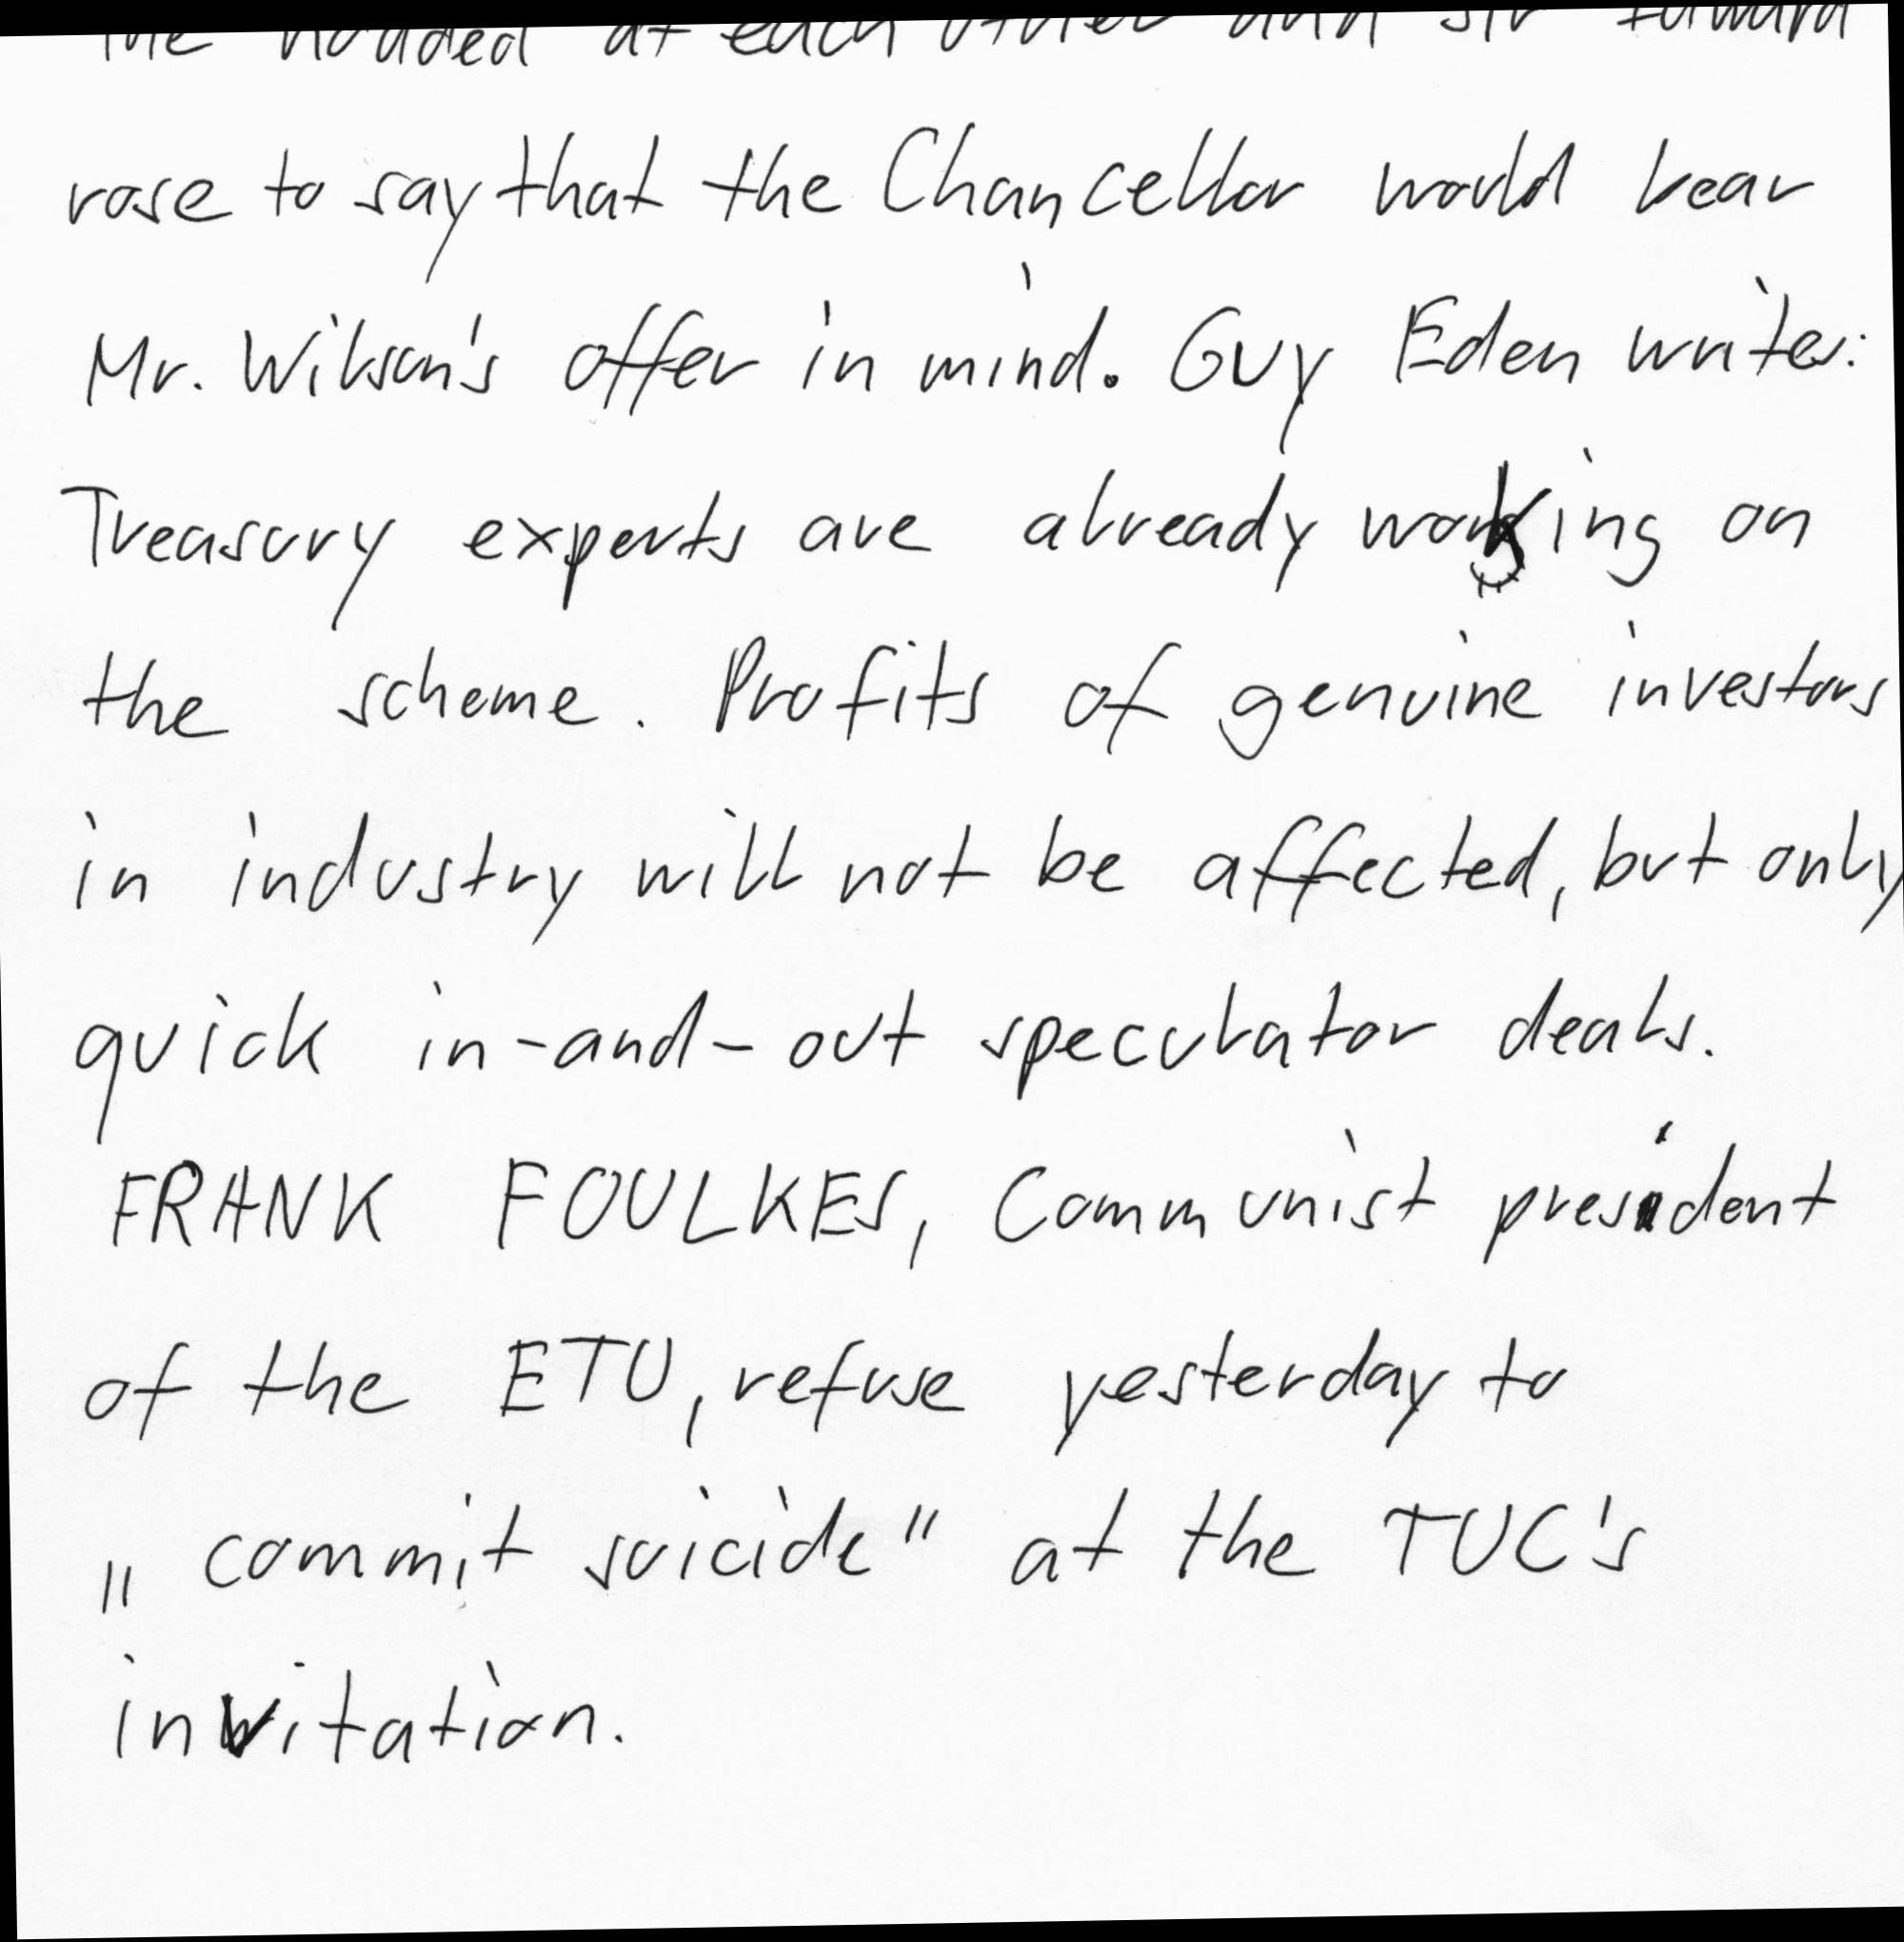 the nodded at each other and Sir Edward
rose to say that the Chancellor would bear
Mr. Wilson's offer in mind. Guy Eden writes:
Treasury experts are already working on
the scheme. Profits of genuine investors
in industry will not be affected, but only
quick in-and-out speculator deals.
FRANK FOULKES, Communist president
of the ETU, refuse yesterday to
„commit suicide" at the TUC's
invitation.